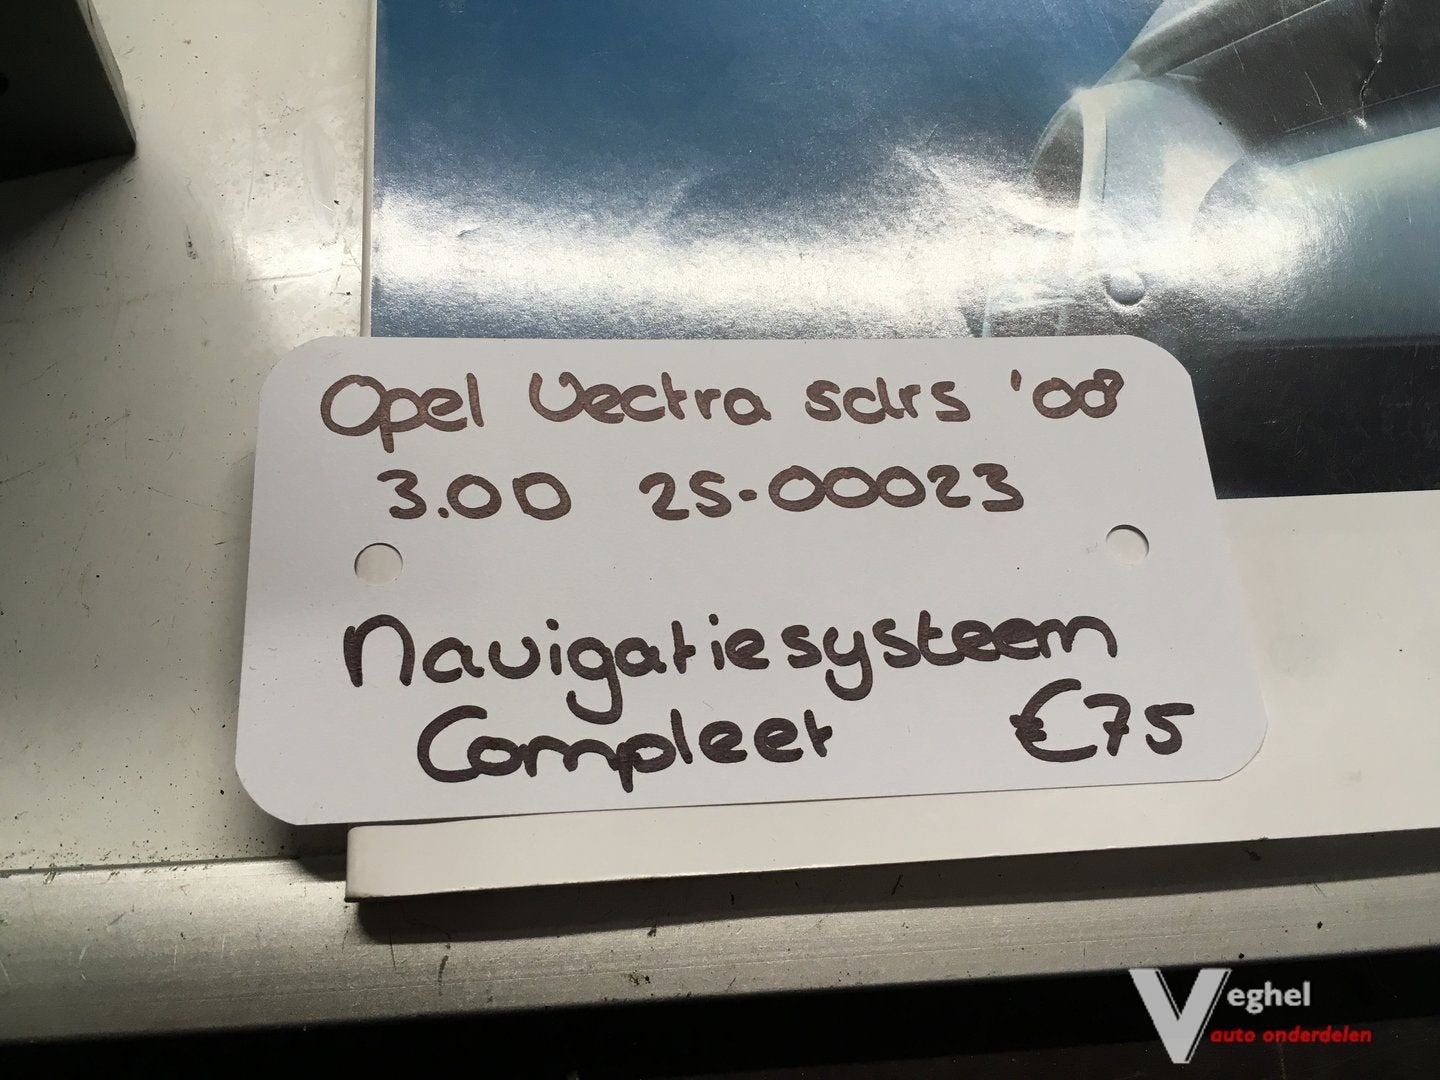 Opel Vectra sdrs '08
3.0D 25-00023
Navigatiesysteem
Compleet €75
Veghel
auto onderdelen